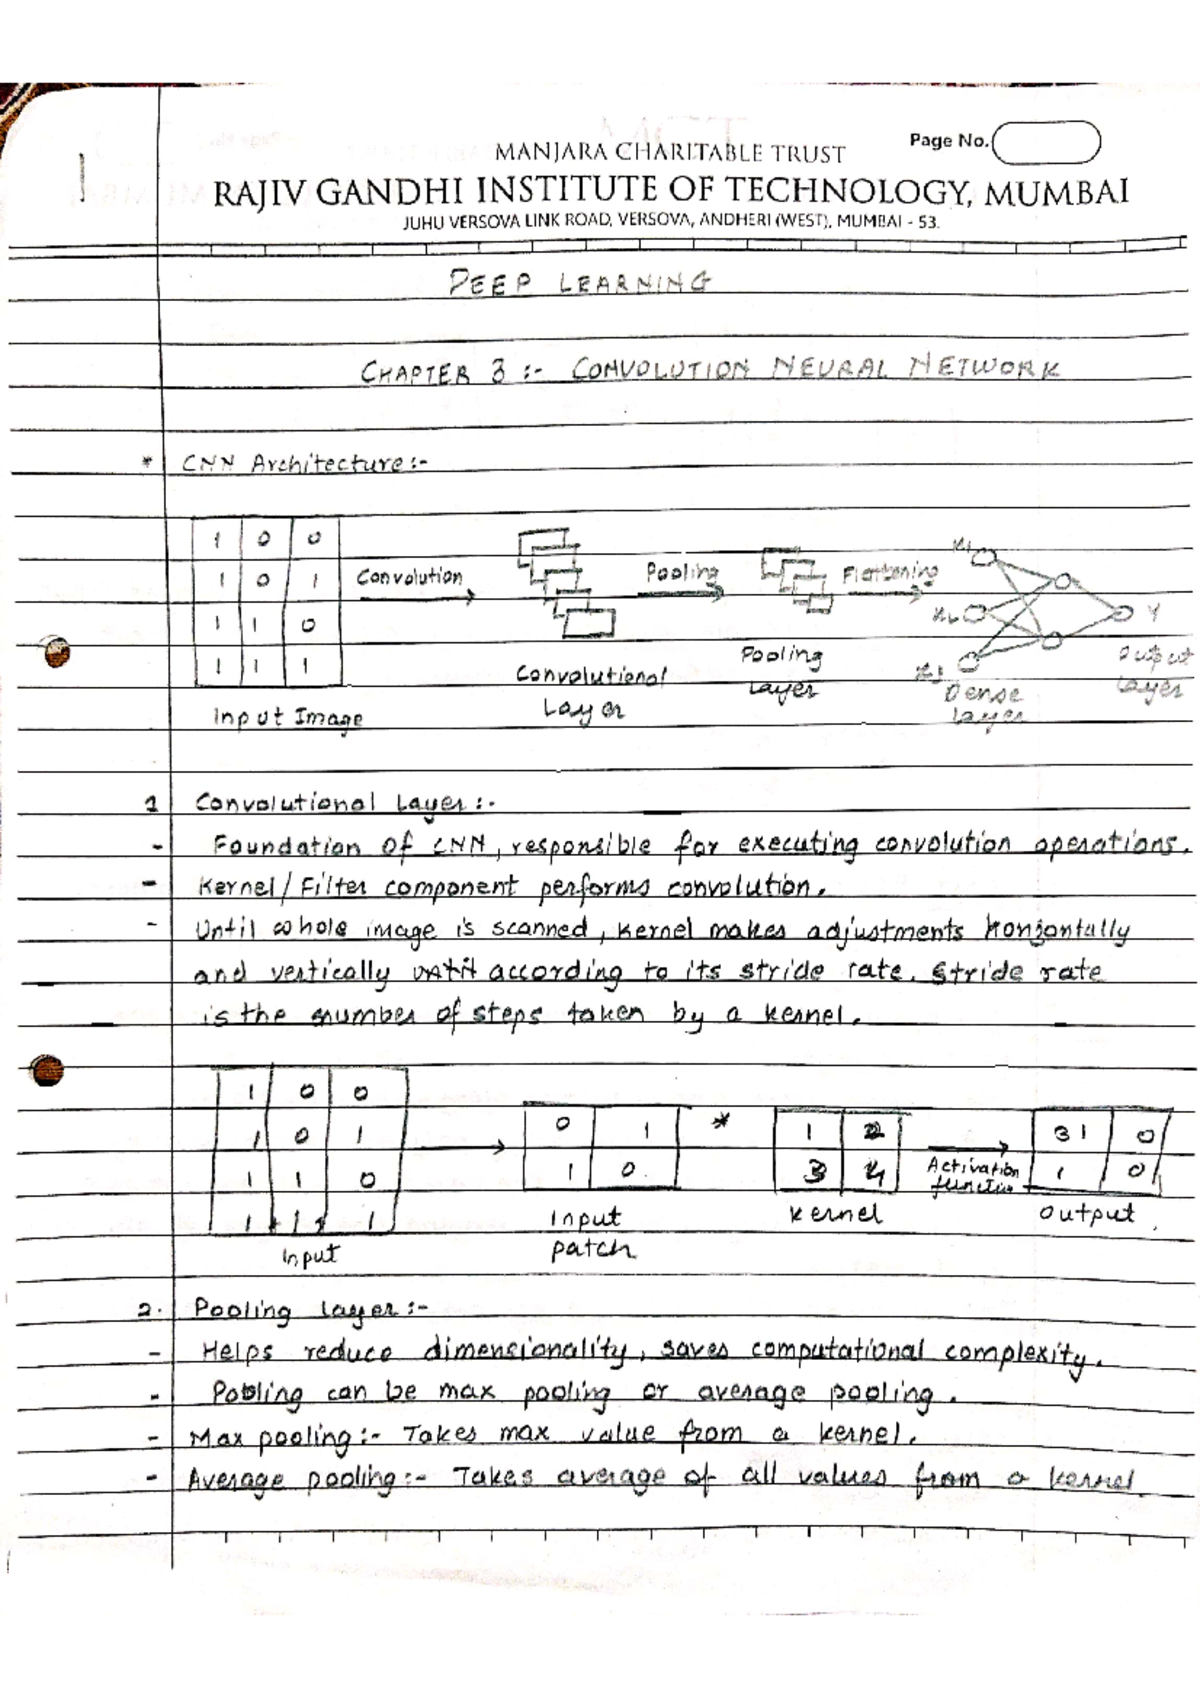 1
Page No.
MANJARA CHARITABLE TRUST
RAJIV GANDHI INSTITUTE OF TECHNOLOGY, MUMBAI
JUHU VERSOVA LINK ROAD, VERSOVA, ANDHERI (WEST), MUMBAI - 53.
DEEP LEARNING
CHAPTER 3 :- CONVOLUTION NEURAL NETWORK
* CNN Architecture :-
1 0 0
1 0 1
1 1 0
1 1 1
Input Image
Convolution
Convolutional Layer
Pooling
Pooling Layer
Flattening
x1
x2
x3
Dense Layer
Y
Output Layer
1 Convolutional Layer :-
- Foundation of CNN, responsible for executing convolution operations.
- Kernel/Filter component performs convolution.
- Until whole image is scanned, kernel makes adjustments horizontally
and vertically according to its stride rate. Stride rate
is the number of steps taken by a kernel.
1 0 0
1 0 1
1 1 0
1 1 1
Input
0 1
1 0
Input patch
*
1 2
3 4
Kernel
Activation function
31 0
1 0
Output
2. Pooling Layer :-
- Helps reduce dimensionality, saves computational complexity.
- Pooling can be max pooling or average pooling.
- Max pooling :- Takes max value from a kernel.
- Average pooling :- Takes average of all values from a kernel